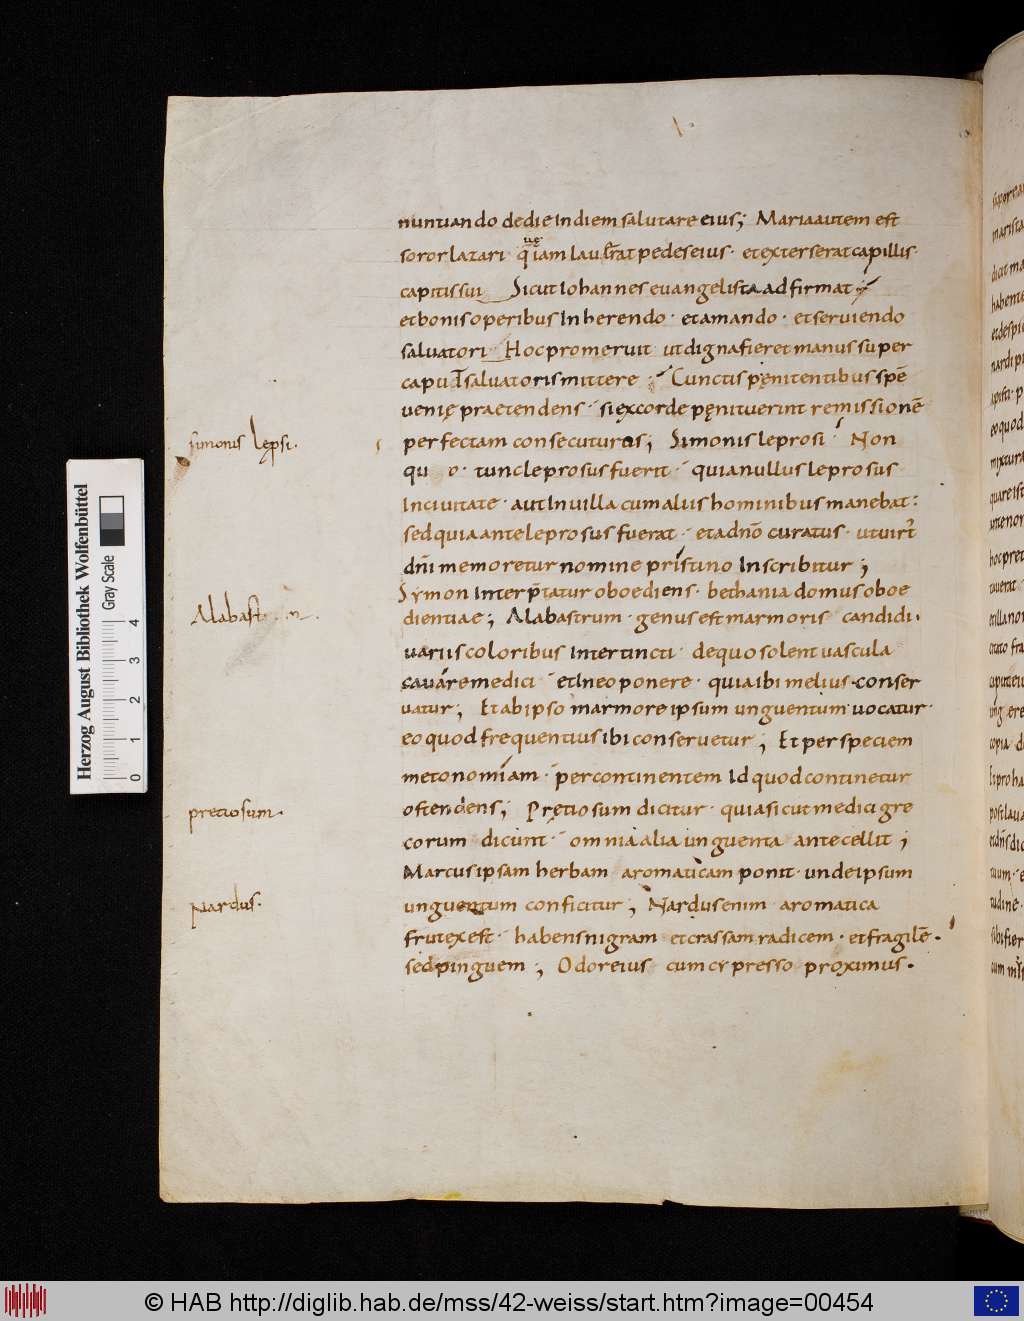 nuntiando de die in diem salutare eius; Maria autem est
soror lazari quę iam lauerat pedes eius· et exterserat capillis·
capitis sui Sicut Iohannes euangelista adfirmat
et bonis operibus Inherendo· et amando· et seruiendo
saluatori· Hoc promeruit ut digna fieret manus super
caput saluatoris mittere Cunctis pęnitentibus spē
uenię praetendens· si ex corde pęnituerint remissionē
simonis lepsi·
perfectam consecuturas; Simonis leprosi· Non
qu o· tunc leprosus fuerit· quia nullus leprosus
In ciuitate· aut In uilla cum aliis hominibus manebat:
sed quia ante leprosus fuerat· et a dnō curatus· ut uirt
dn̄i memoretur nomine pristino Inscribitur;
Symon Interp̄tatur oboediens· bethania domus oboe
Alabast
dientiae; Alabastrum· genus est marmoris candidi·
uariis coloribus Intertincti· de quo solent uascula
cauare medici et In eo ponere· quia ibi melius conser
uatur; Et ab ipso marmore ipsum unguentum uocatur·
eo quod frequentius ibi conseruetur; Et per speciem
metonomiam· per continentem Id quod continetur
pretiosum·
ostendens; Pretiosum dicitur· quia sicut medici gre
corum dicunt· omnia alia unguenta antecellit;
Marcus ipsam herbam aromaticam ponit· unde ipsum
Nardus·
unguentum conficitur; Nardus enim aromatica
frutex est· habens nigram et crassam radicem· et fragilē·
sed pinguem; Odor eius cum cypresso proximus·
Herzog August Bibliothek Wolfenbüttel
Gray Scale
0 1 2 3 4
© HAB http://diglib.hab.de/mss/42-weiss/start.htm?image=00454